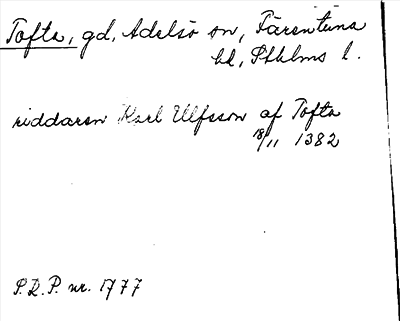 Tofta, gd, Adelsö sn, Färentuna
hd, Sthlms l.
riddaren Karl Ulfsson af Tofta
18/11 1382
S.R.P. nr. 1777